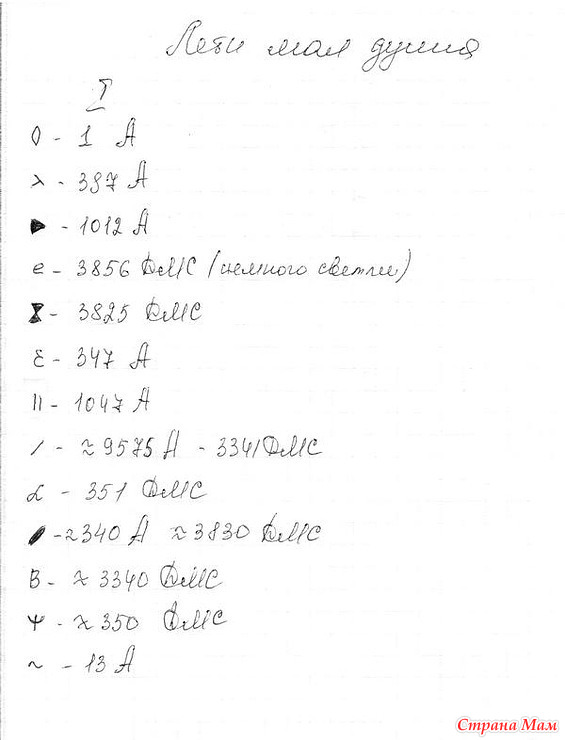 Лети моя душа
I
0 - 1 А
λ - 387 А
▶ - 1012 А
е - 3856 ДМС (немного светлее)
⧗ - 3825 ДМС
ε - 347 А
II - 1047 А
/ - ≈ 9575 А - 3341 ДМС
α - 351 ДМС
- 2340 А ≈ 3830 ДМС
В - ≈ 3340 ДМС
Ψ - ≈ 350 ДМС
~ - 13 А
Страна Мам